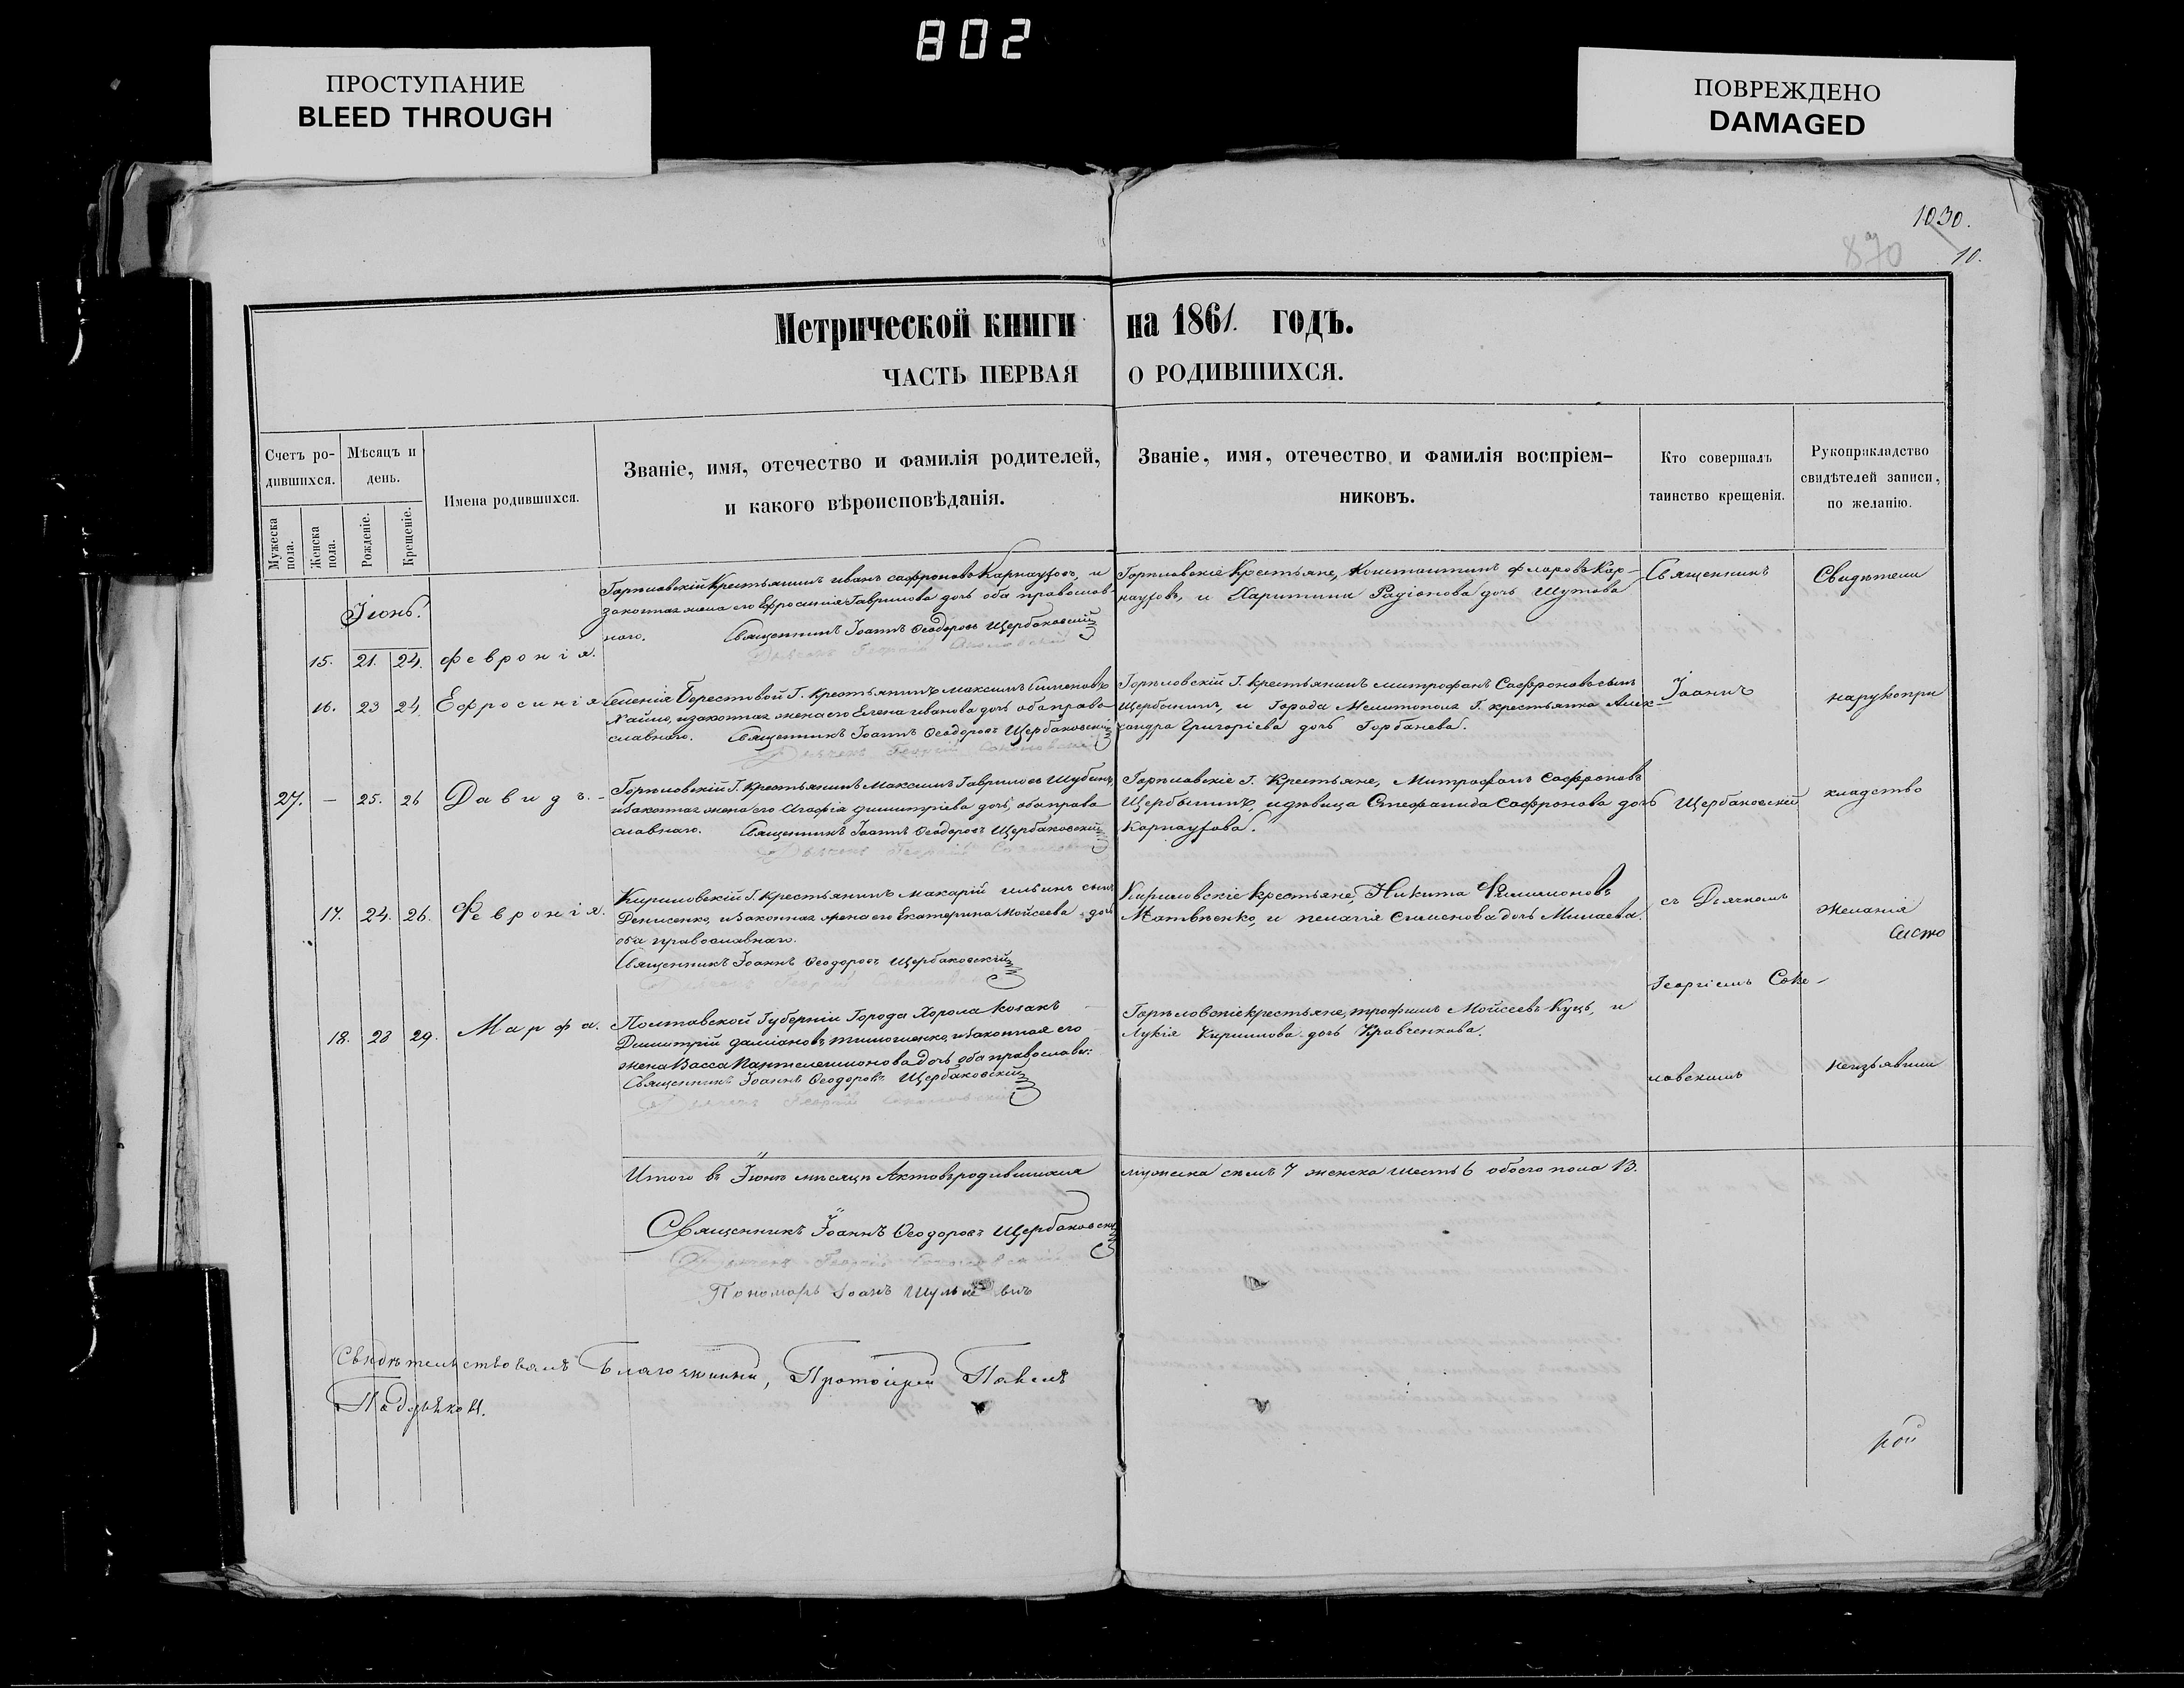 802
ПРОСТУПАНИЕ
BLEED THROUGH
ПОВРЕЖДЕНО
DAMAGED
1030.
870
10.
Метрической книги на 1861. годъ.
ЧАСТЬ ПЕРВАЯ О РОДИВШИХСЯ.
Счетъ ро-
дившихся.
Мужеска
пола.
Женска
пола.
Мѣсяцъ и
день.
Рожденіе.
Крещеніе.
Имена родившихся.
Званіе, имя, отечество и фамилія родителей,
и какого вѣроисповѣданія.
Званіе, имя, отечество и фамилія воспріем-
никовъ.
Кто совершалъ
таинство крещенія.
Рукоприкладство
свидѣтелей записи,
по желанію.
Іюнь.
15. 21. 24. Февронія.
Горѣловскій Крестьянинъ иванъ сафроновъ Карнауховъ, и
законная жена его Ефросинія Гаврилова дочь оба православ-
наго. Священникъ Іоаннъ Ѳеодоровъ Щербаковскій
Горѣловскіе Крестьяне, Константинъ флоровъ Кар-
науховъ, и Харитина Радіонова дочь Шутова
16. 23 24. Ефросинія
Селенія Берестовой Г. Крестьянинъ максимъ Симеоновъ
законная жена его Елена иванова дочь оба право
славнаго. Священникъ Іоаннъ Ѳеодоровъ Щербаковскій
Горѣловскій Г. крестьянинъ митрофанъ Сафроновъ сынъ
Щербанинъ, и Города Мелитополя Г. крестьянка Алек-
сандра Григорієва дочь Горбанева.
27. — 25. 26 Давидъ. -
Горѣловскій Г. Крестьянинъ Максимъ Гавриловъ Шубинъ,
изаконная жена его Агафія димитріева дочь оба право
славнаго. Священникъ Іоаннъ Ѳеодоровъ Щербаковскій
Горѣловскіе Г. Крестьяне, Митрофанъ Сафроновъ
Щербининъ, идѣвица Стефанида Сафронова дочь
Карнаухова.
17. 24. 26. Февронія.
Кириловскій Г. Крестьянинъ макарій ильинъ сынъ
Денисенко, изаконная жена его Екатерина Мойсеева дочь
оба православнаго.
Священникъ Іоаннъ Ѳеодоровъ Щербаковскій
Кириловскіе крестьяне, Никита Филимоновъ
Матвѣенко, и пелагія Симеонова дочь Милаева.
18. 28 29. Марфа.
Полтавской Губерніи Города Хорола козакъ
Димитрій даміановъ тимошенко, изаконная его
жена Васса Пантелеимонова дочь оба православн:
Священникъ Іоаннъ Ѳеодоровъ Щербаковскій
Дьячекъ Георгій Соколовскій
Горѣловскіе крестьяне, трофимъ Мойсеевъ Куцъ, и
Лукія Кирилова дочь Кравченкова.
Священникъ
Іоаннъ
Щербаковскій
съ Дьячкомъ
Георгіемъ Соко-
ловскимъ
Свидѣтели
нарукопри
кладство
желанія
неизъявили
Итого въ Іюнѣ мѣсяцѣ Актовъ родившихся мужеска семь 7 женска шесть 6 обоего пола 13.
Священникъ Іоаннъ Ѳеодоровъ Щербаковскій
Дьячекъ Георгій Соколовскій
Пономарь Іоанъ
Свидѣтельствовалъ Благочинный, Протоіерей Павелъ